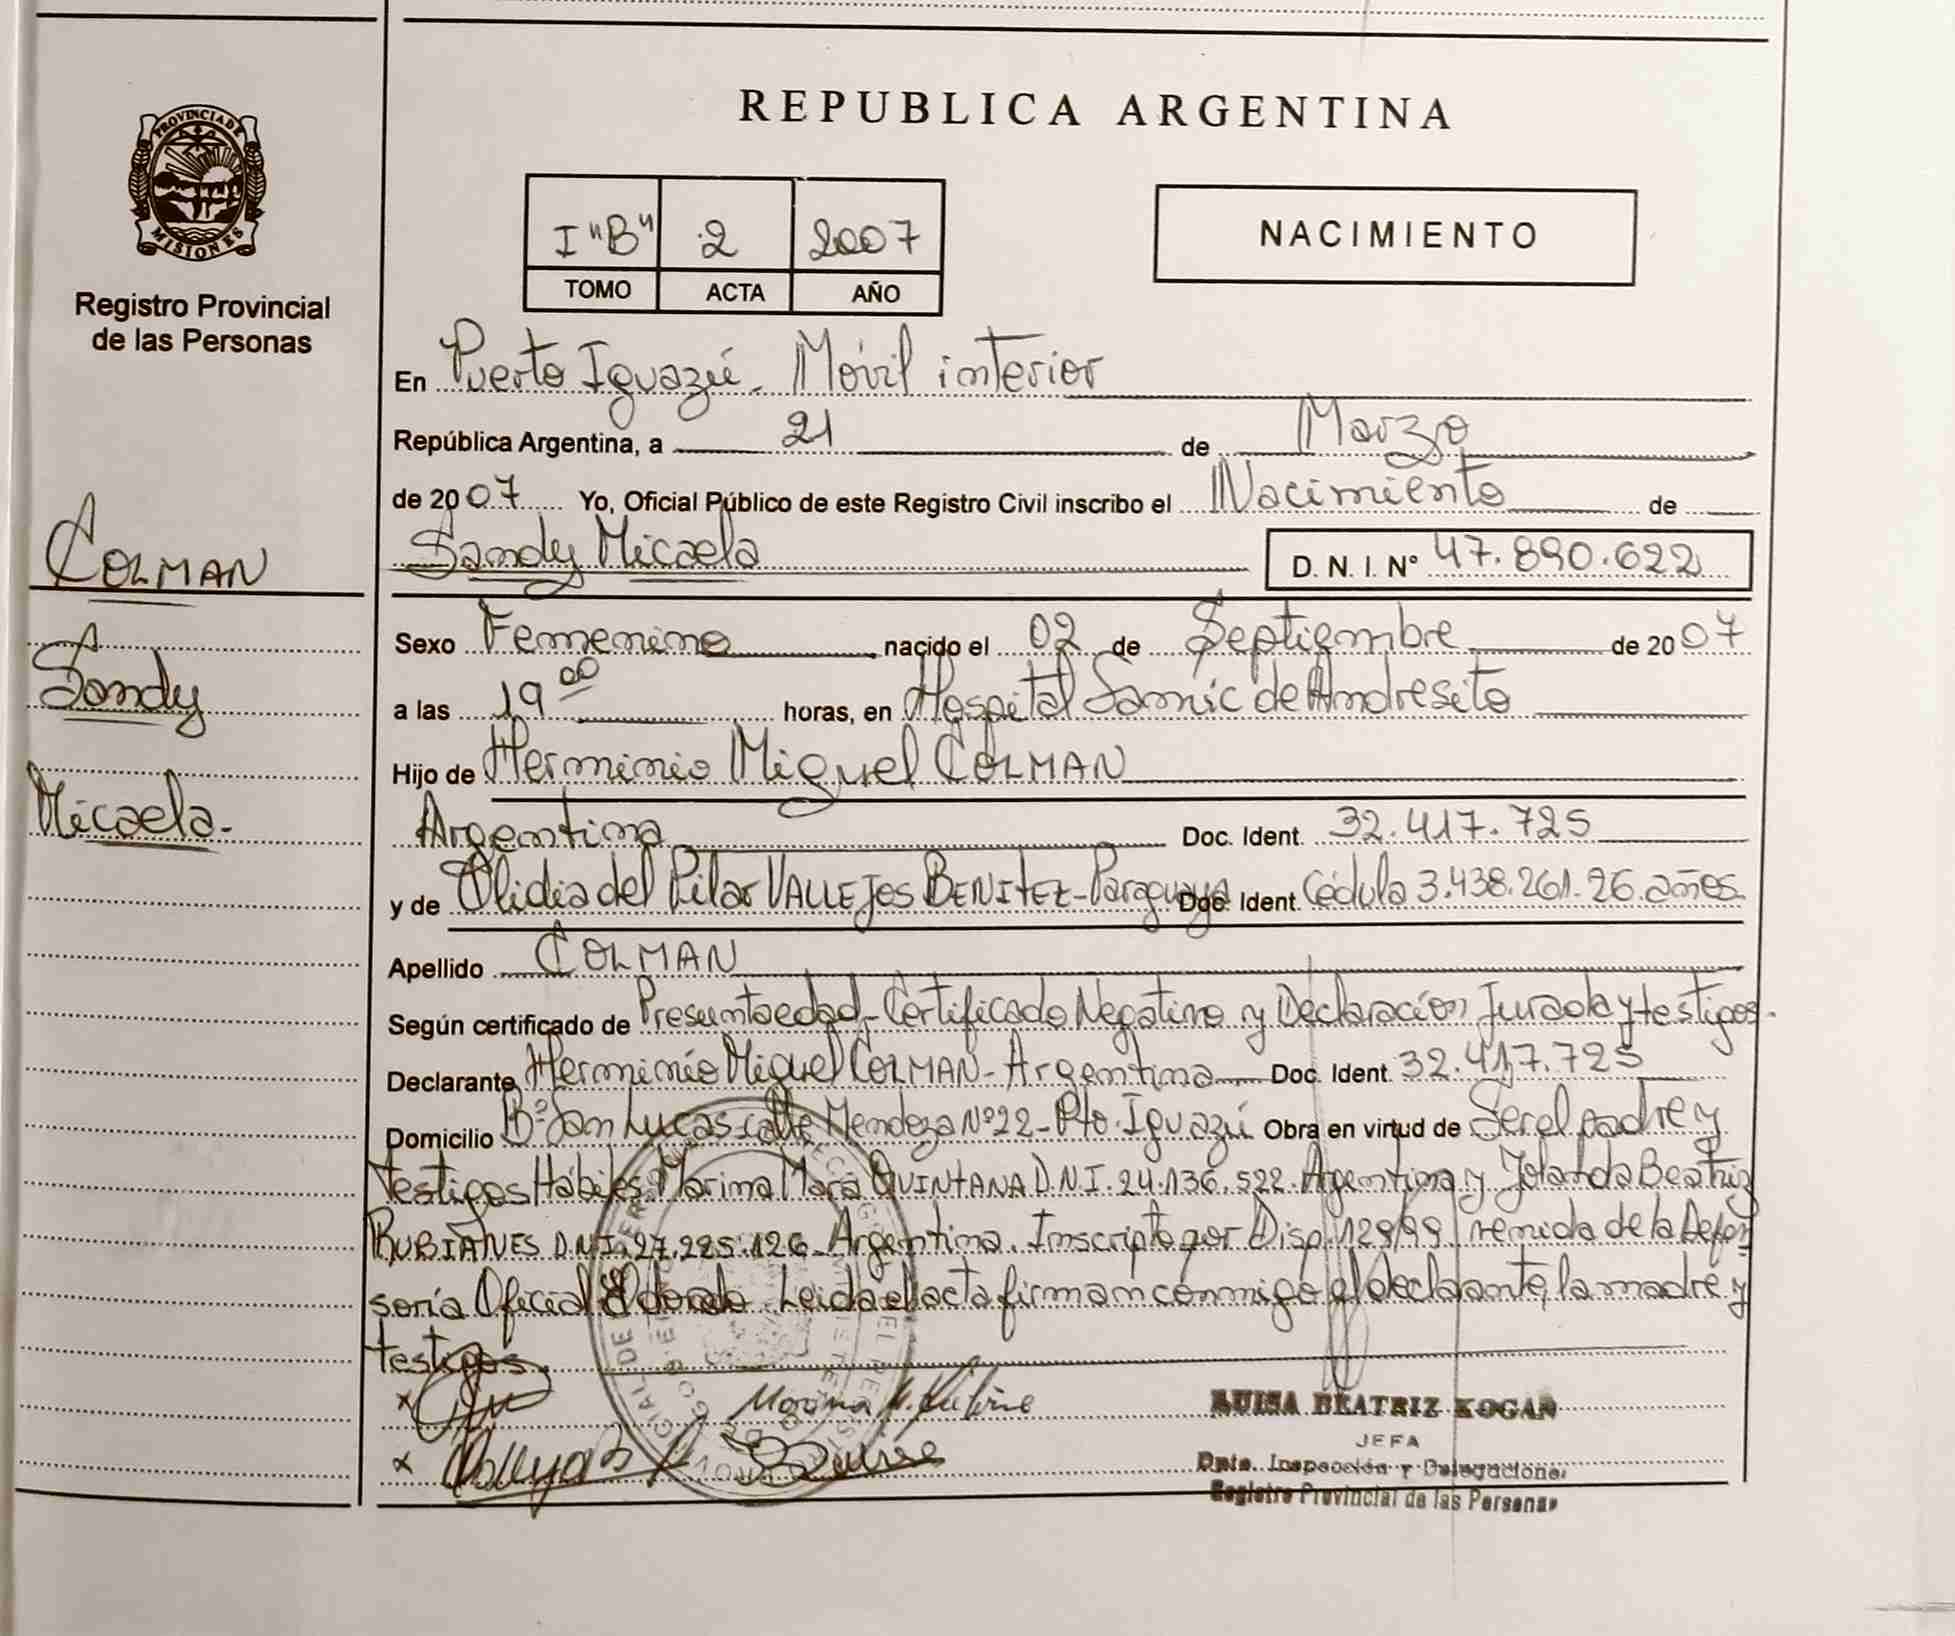 REPUBLICA ARGENTINA
PROVINCIA DE
MISIONES
Registro Provincial
de las Personas
I "B" 2 2007
TOMO ACTA AÑO
NACIMIENTO
En Puerto Iguazú - Móvil interior
República Argentina, a 21 de Marzo
de 2007 Yo, Oficial Público de este Registro Civil inscribo el Nacimiento de
Sandy Micaela D. N. I. N° 47.890.622
COLMAN
Sandy
Micaela.-
Sexo Femenino nacido el 02 de Septiembre de 2007
a las 19 00 horas, en Hospital Samic de Andresito
Hijo de Herminio Miguel COLMAN
Argentina Doc. Ident. 32.417.725
y de Olidia del Pilar VALLEJOS BENITEZ - Paraguaya Doc. Ident. Cédula 3.438.261. 26 años.
Apellido COLMAN
Según certificado de Presunta edad - Certificado Negativo y Declaración Jurada y testigos.
Declarante Herminio Miguel COLMAN - Argentina Doc. Ident. 32.417.725
Domicilio B° San Lucas calle Mendoza N° 22 - Pto. Iguazú Obra en virtud de Ser el padre y
testigos Hábiles: Marina Mara QUINTANA D.N.I. 24.136.522. Argentina y Yolanda Beatriz
RUBIANES D.N.I. 27.225.126 - Argentina. Inscripto por Disp. 128/99 remida de la Defen
soría Oficial Eldorado. Leida el acta firman conmigo el declarante, la madre y
testigos.
LUISA BEATRIZ KOGAN
JEFA
Dpto. Inspección y Delegaciones
Registro Provincial de las Personas